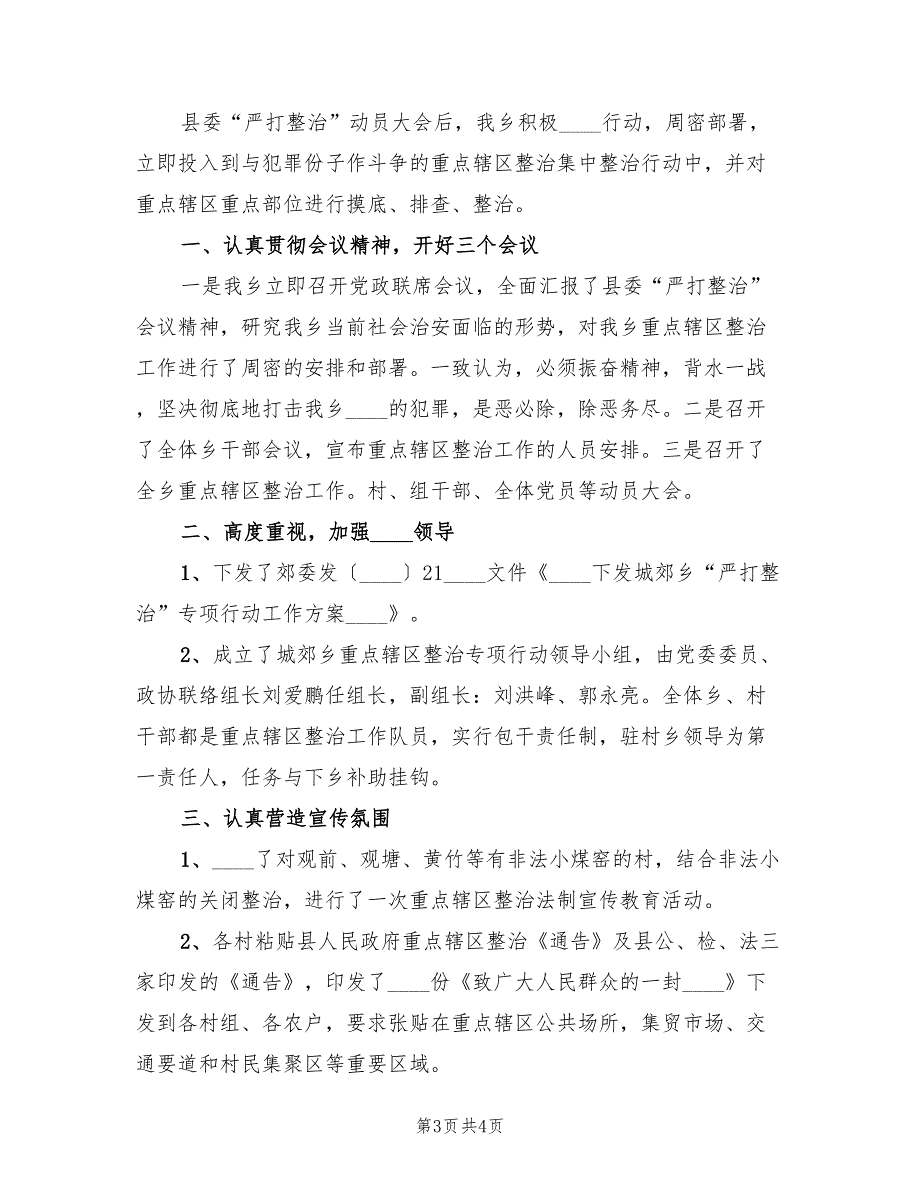 县委“严打整治”动员大会后，我乡积极____行动，周密部署，
立即投入到与犯罪份子作斗争的重点辖区整治集中整治行动中，并对
重点辖区重点部位进行摸底、排查、整治。
一、认真贯彻会议精神，开好三个会议
一是我乡立即召开党政联席会议，全面汇报了县委“严打整治”
会议精神，研究我乡当前社会治安面临的形势，对我乡重点辖区整治
工作进行了周密的安排和部署。一致认为，必须振奋精神，背水一战
，坚决彻底地打击我乡____的犯罪，是恶必除，除恶务尽。二是召开
了全体乡干部会议，宣布重点辖区整治工作的人员安排。三是召开了
全乡重点辖区整治工作。村、组干部、全体党员等动员大会。
二、高度重视，加强____领导
1、下发了郊委发〔____〕21____文件《____下发城郊乡“严打整
治”专项行动工作方案____》。
2、成立了城郊乡重点辖区整治专项行动领导小组，由党委委员、
政协联络组长刘爱鹏任组长，副组长：刘洪峰、郭永亮。全体乡、村
干部都是重点辖区整治工作队员，实行包干责任制，驻村乡领导为第
一责任人，任务与下乡补助挂钩。
三、认真营造宣传氛围
1、____了对观前、观塘、黄竹等有非法小煤窑的村，结合非法小
煤窑的关闭整治，进行了一次重点辖区整治法制宣传教育活动。
2、各村粘贴县人民政府重点辖区整治《通告》及县公、检、法三
家印发的《通告》，印发了____份《致广大人民群众的一封____》下
发到各村组、各农户，要求张贴在重点辖区公共场所，集贸市场、交
通要道和村民集聚区等重要区域。
第3页共4页